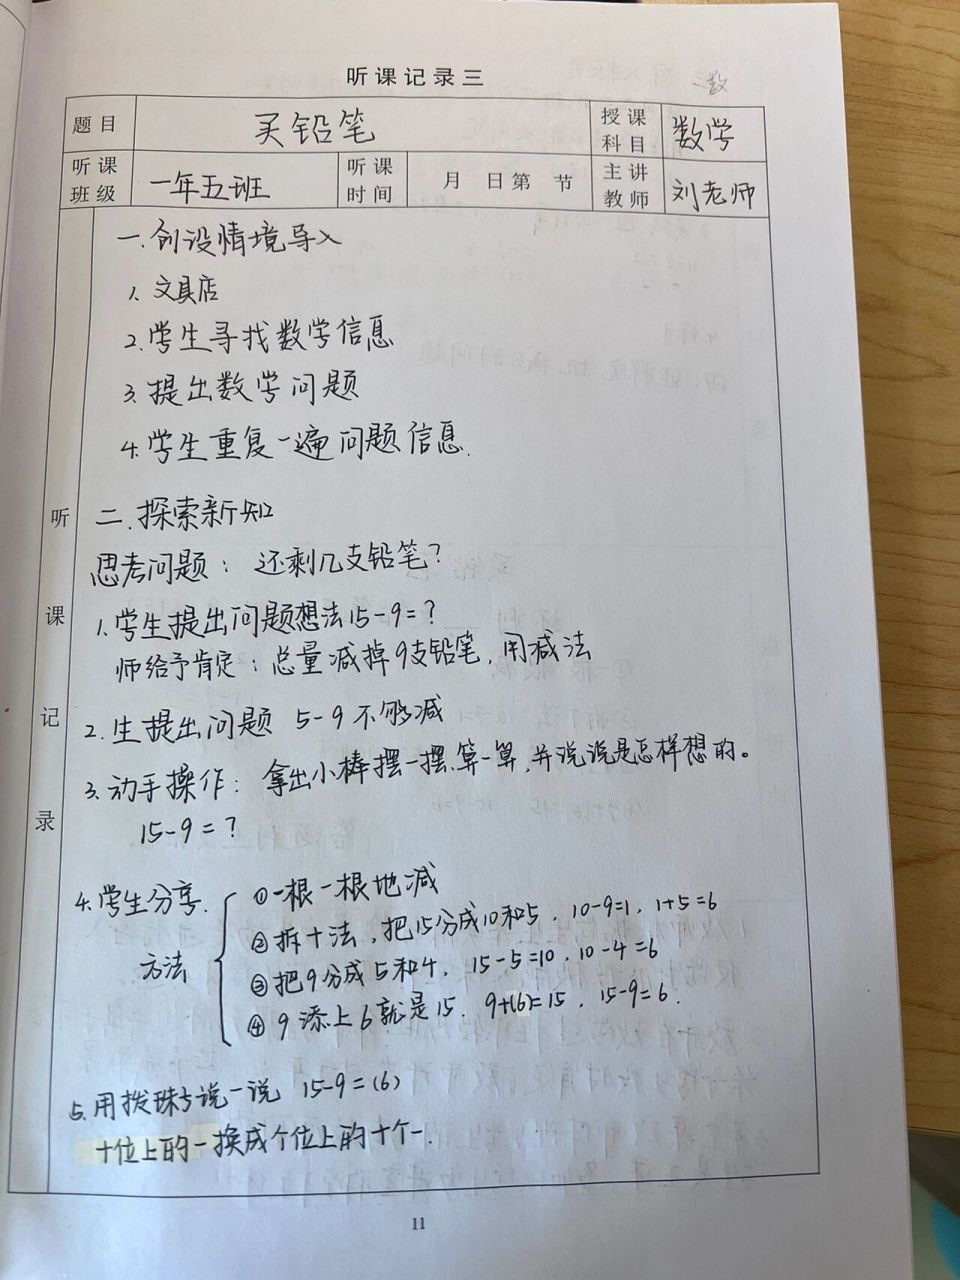 听课记录三
题目 买铅笔 授课科目 数学
听课班级 一年五班 听课时间 月 日第 节 主讲教师 刘老师
听课记录
一.创设情境导入
1.文具店
2.学生寻找数学信息
3.提出数学问题
4.学生重复一遍问题信息.
二.探索新知
思考问题：还剩几支铅笔？
1.学生提出问题想法15-9=？
师给予肯定：总量减掉9支铅笔，用减法
2.生提出问题 5-9不够减
3.动手操作：拿出小棒摆一摆.算一算，并说说是怎样想的。
15-9=？
4.学生分享.方法
①一根一根地减
②拆十法，把15分成10和5，10-9=1，1+5=6
③把9分成5和4，15-5=10，10-4=6
④9添上6就是15. 9+(6)=15，15-9=6.
5.用拨珠 说一说 15-9=(6)
十位上的一换成个位上的十个一.
11